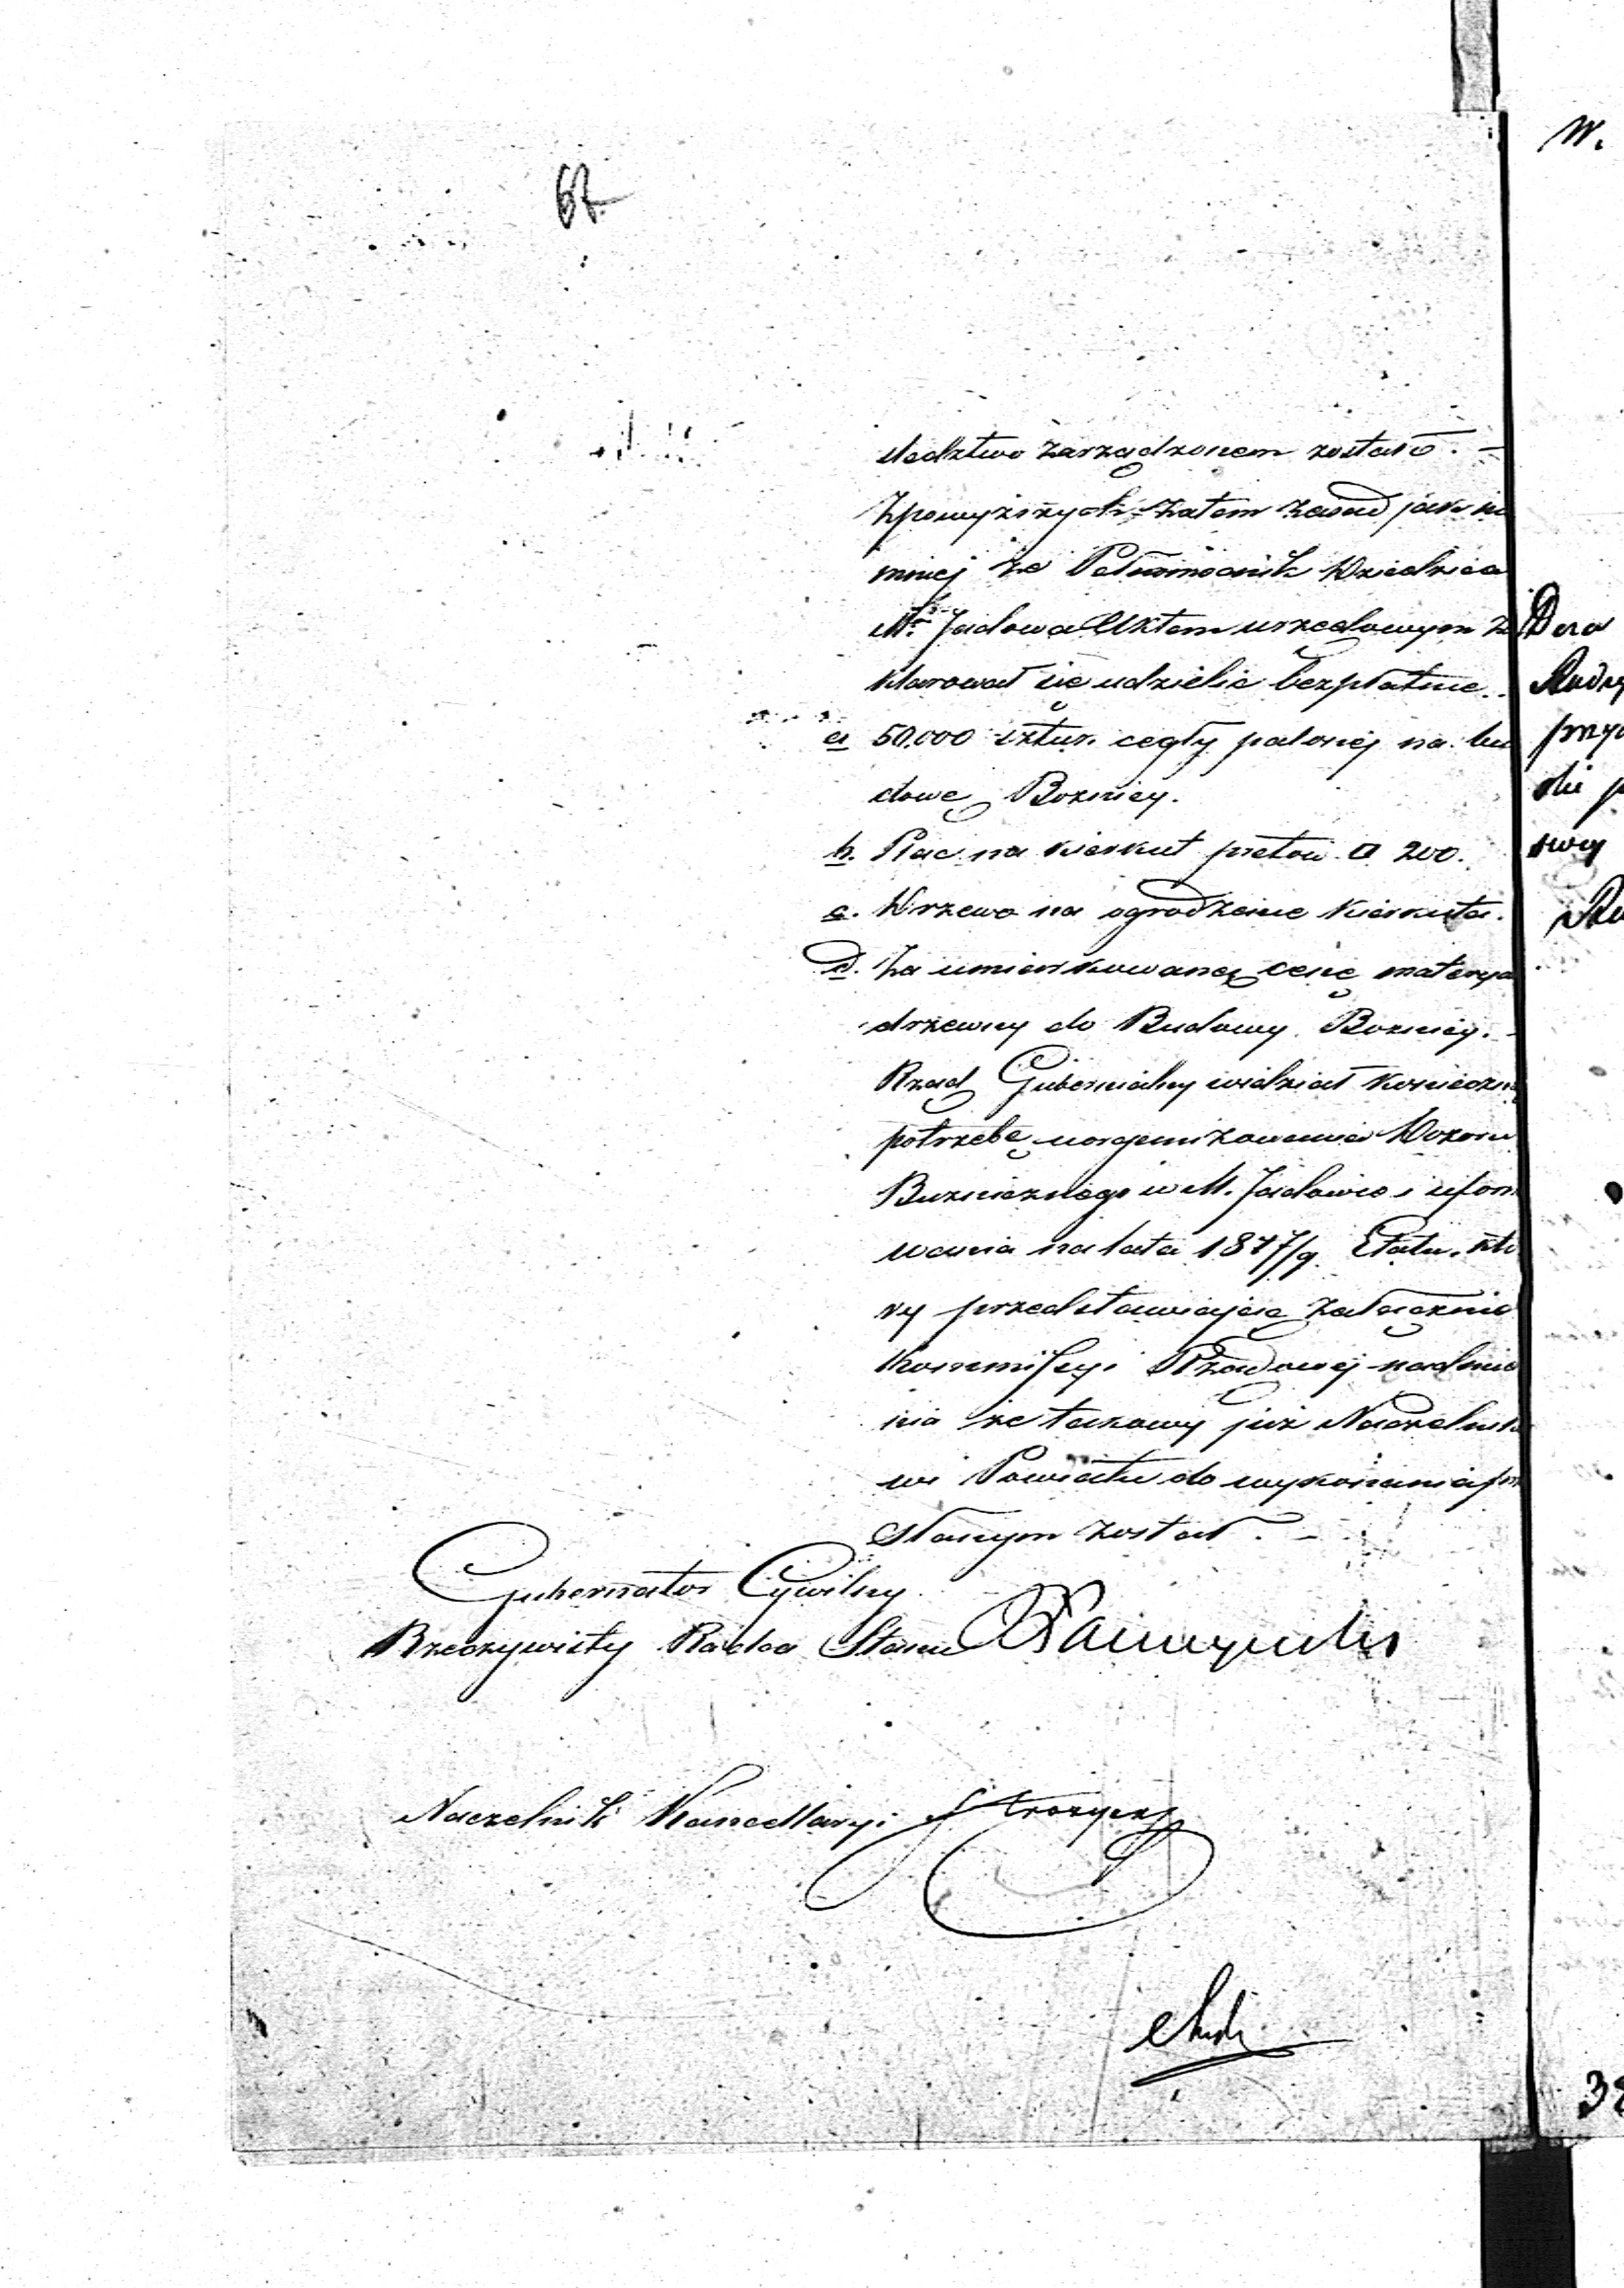 67
śledztwo zarządzonem zostało. –
Z powyższych zatem zasad jako i
mniej że Pełnomocnik Dziedzica
Mta Jadowa Aktem urzędowym
klarował się udzielić bezpłatnie.
a 50,000 sztuk cegły palonej na bu
dowę Boznicy.
b. Plac na kierkut prętów □ 200.
c. Drzewo na ogrodzenie kierkuta.
d. Za umiarkowaną cenę materya
drzewny do Budowy Boznicy. –
Rząd Gubernialny widział konieczn
potrzebę uorganizowania Dozoru
Buznicznego w M. Jadowie i ufor
wania na lata 1847/9 Etatu, któ
ry przedstawiając załącznie
Kommissyi Rządowej nadmie
nia że takowy już Naczelniko
wi Powiatu do wykonania
słanym został. –
Gubernator Cywilny
Rzeczywisty Radca Stanu
Naczelnik Kancellaryi
W.
swey
38